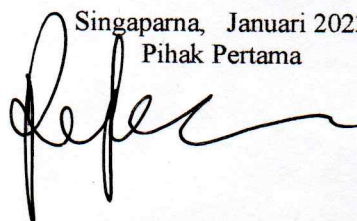 Singaparna, Januari 202
Pihak Pertama